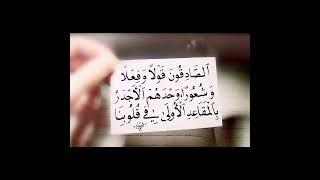 الصَّادِقُونَ قَوْلاً وَفِعْلاً
وَشُعُورًا، وَحْدَهُمْ الْأَجْدَرُ
بِالْمَقَاعِدِ الْأُولَى فِي قُلُوبِنَا